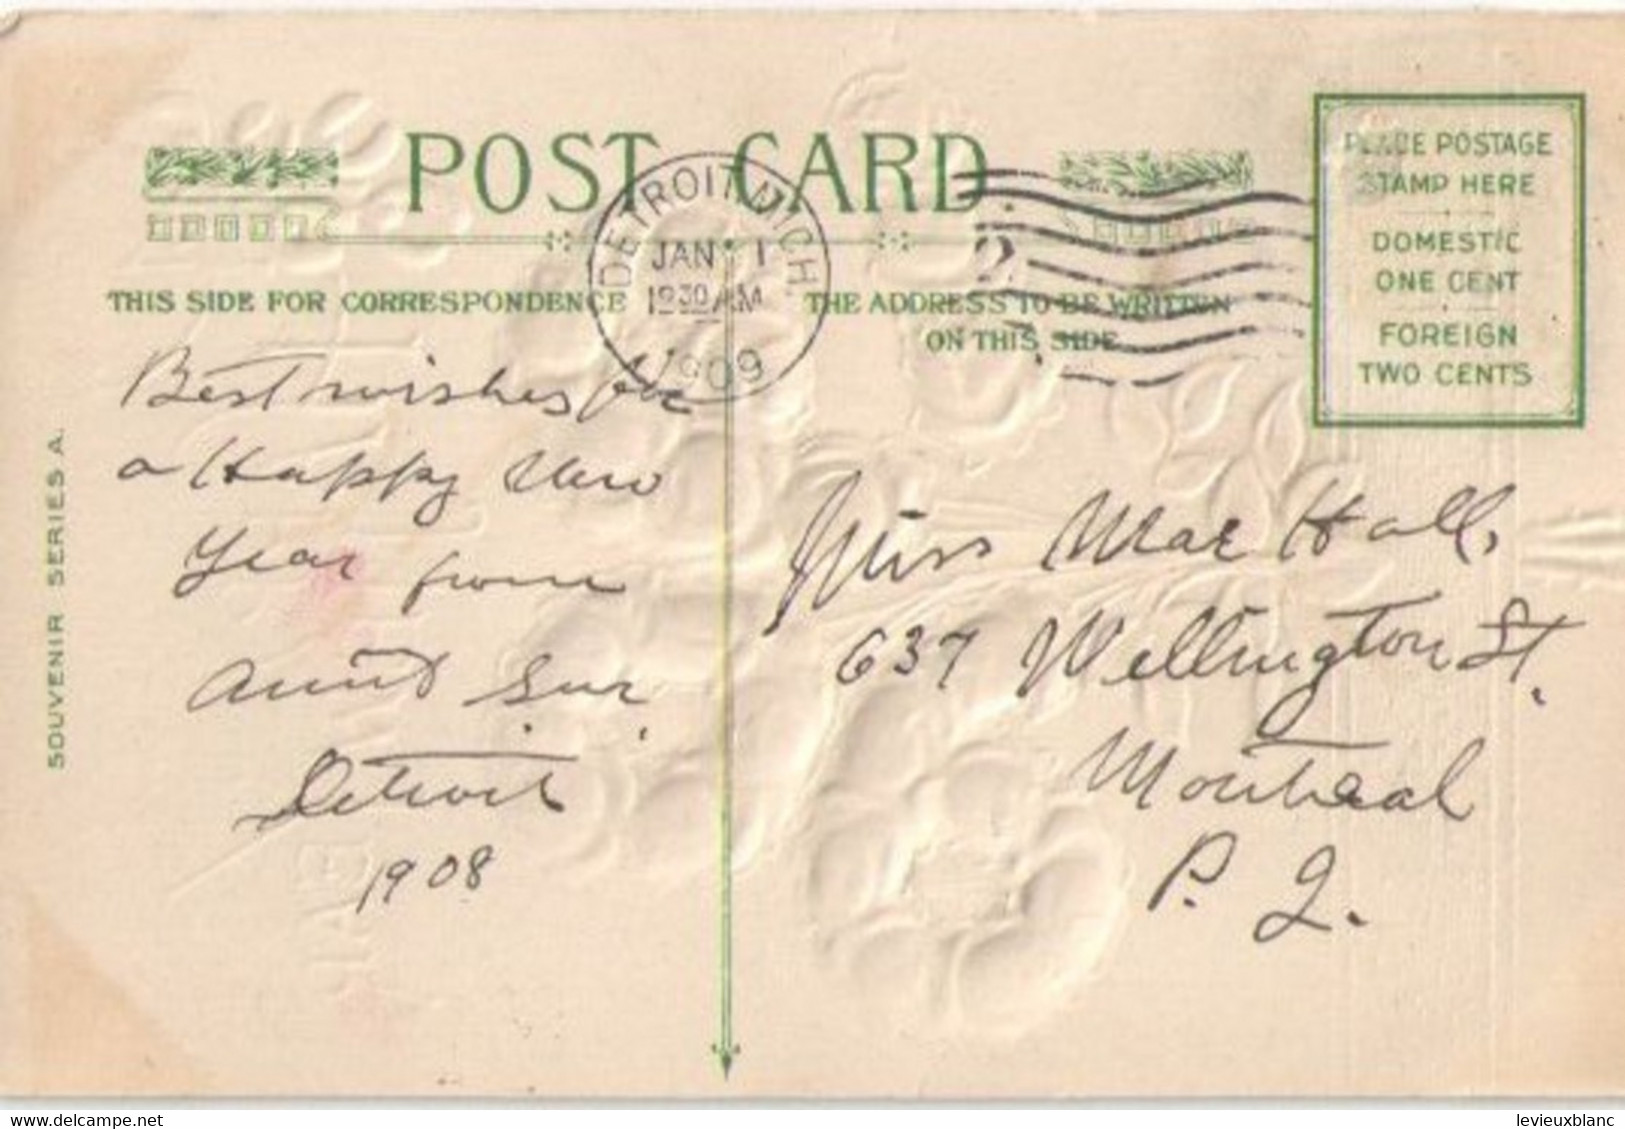 POST CARD
DETROIT, MICH.
JAN 1
1909
2
PLACE POSTAGE
STAMP HERE
DOMESTIC
ONE CENT
FOREIGN
TWO CENTS
THIS SIDE FOR CORRESPONDENCE
THE ADDRESS TO BE WRITTEN
ON THIS SIDE
SOUVENIR SERIES A.
Best wishes for
a Happy New
Year from
Aunt
Detroit
1908
Miss Mae Hall,
637 Wellington St.
Montreal
P. Q.
delcampe.net
levieuxblanc